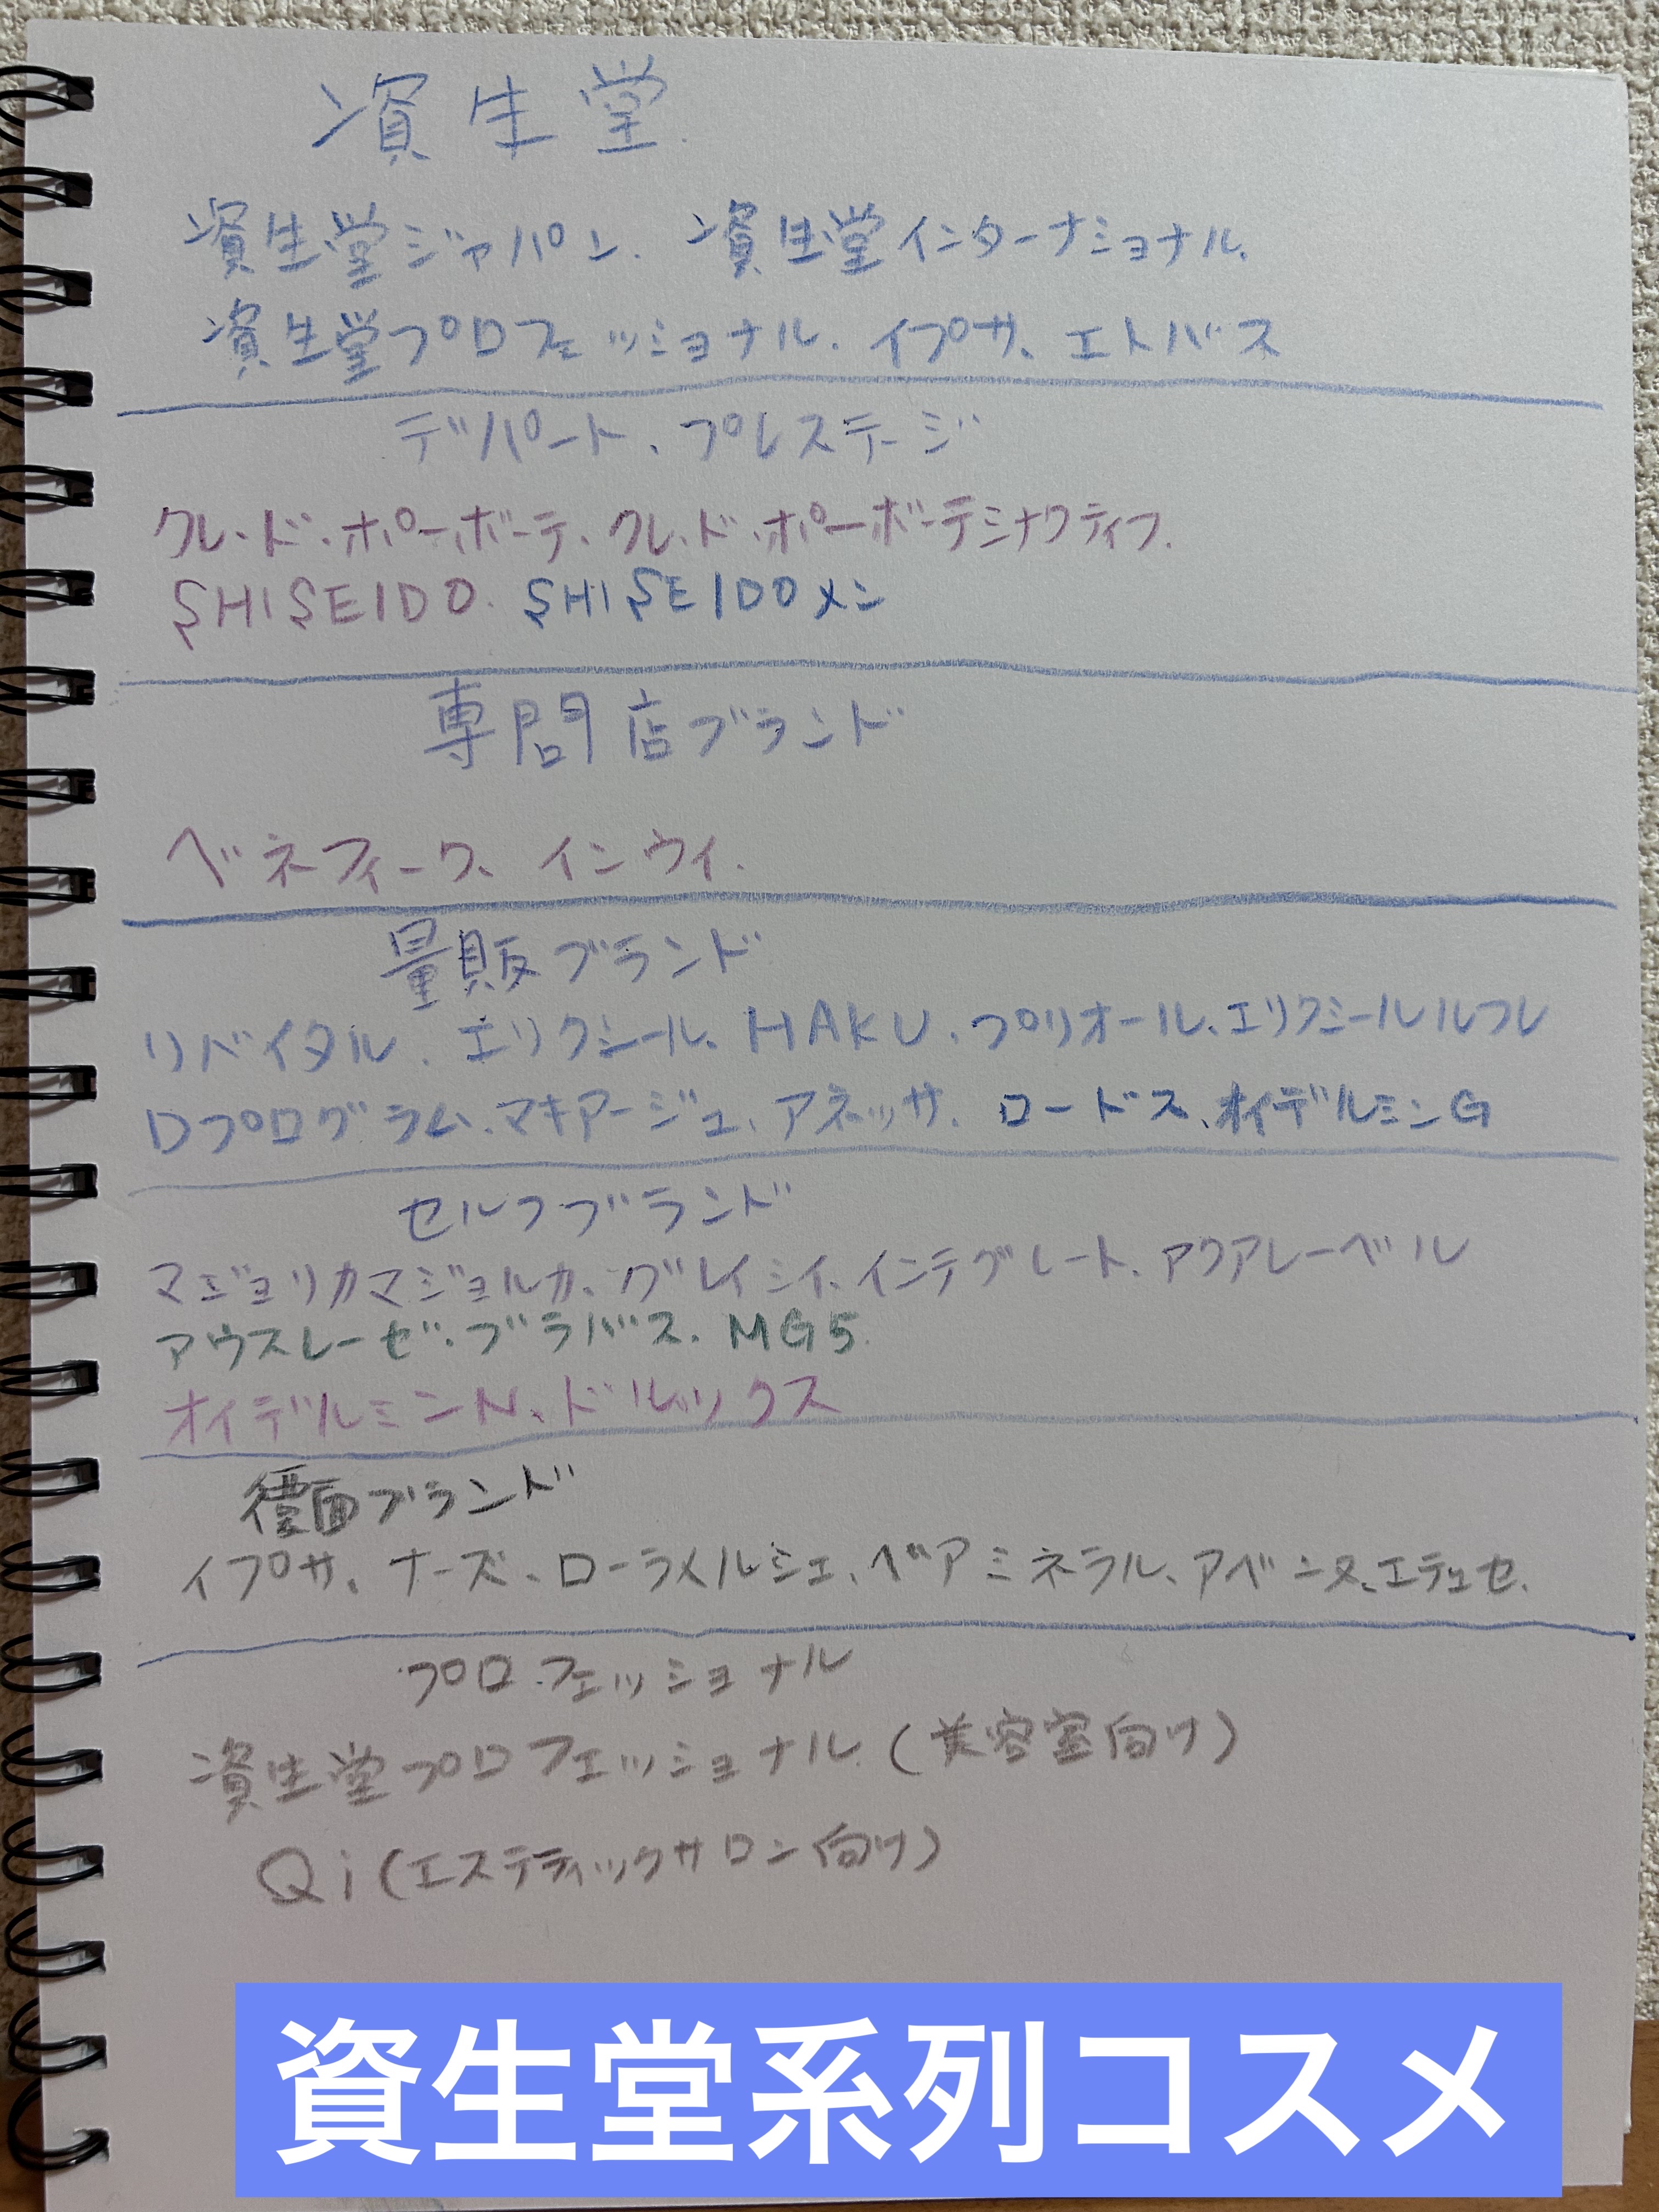 資生堂
資生堂ジャパン、資生堂インターナショナル、
資生堂プロフェッショナル、イプサ、エトバス
デパート、プレステージ
クレ・ド・ポー・ボーテ、クレ・ド・ポーボーテシナクティフ、
SHISEIDO、SHISEIDOメン
専門店ブランド
ベネフィーク、インウイ、
量販ブランド
リバイタル、エリクシール、HAKU、プリオール、エリクシールルフレ
Dプログラム、マキアージュ、アネッサ、ロードス、オイデルミンG
セルフブランド
マジョリカマジョルカ、グレイシイ、インテグレート、アクアレーベル
アウスレーゼ、ブラバス、MG5
オイデルミンN、ドルックス
覆面ブランド
イプサ、ナーズ、ローラメルシェ、ベアミネラル、アベンヌ、エテュセ、
プロフェッショナル
資生堂プロフェッショナル(美容室向け)
Qi(エステティックサロン向け)
資生堂系列コスメ